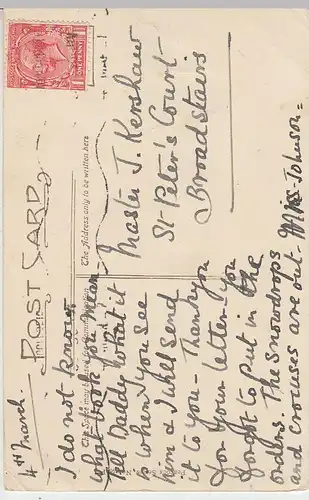 4th March.
I do not know
what book you mean
tell Daddy what it
is when you see
him & I will send
it to you - Thank you
for your letter - You
forgot to put in the
orders. The snowdrops
and crocuses are out -
Mrs Johnson -
Master J. Kershaw
St Peter's Court
Broadstairs
POST CARD
The Address only to be written here
ONE PENNY